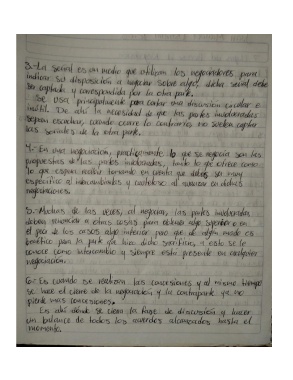 3.- La señal es un medio que utilizan los negociadores para
indicar su disposición a negociar sobre algo, dicha señal debe
ser captada y correspondida por la otra parte.
Se usa principalmente para cortar una discusión circular e
inútil. De ahí la necesidad de que las partes involucradas
sepan escuchar, cuando ocurre lo contrario no suelen captar
las señales de la otra parte.
4.- En una negociación, prácticamente lo que se negocia son las
propuestas de las partes involucradas, tanto lo que ofrece como
lo que espera recibir tomando en cuenta que debes ser muy
específico al intercambiarlas y cauteloso al avanzar en dichas
negociaciones.
5.- Muchas de las veces, al negociar, las partes involucradas
deben renunciar a otras cosas para obtener algo superior o en
el peor de los casos algo inferior pero que de algún modo es
benéfico para la parte que hizo dicho sacrificio, a esto se le
conoce como intercambio y siempre está presente en cualquier
negociación.
6.- Es cuando se realizan las concesiones y al mismo tiempo
se hace el cierre de la negociación y la contraparte ya no
pierde mas concesiones.
Es ahí dónde se cierra la fase de discusión y hacer
un balance de todos los acuerdos alcanzados hasta el
momento.